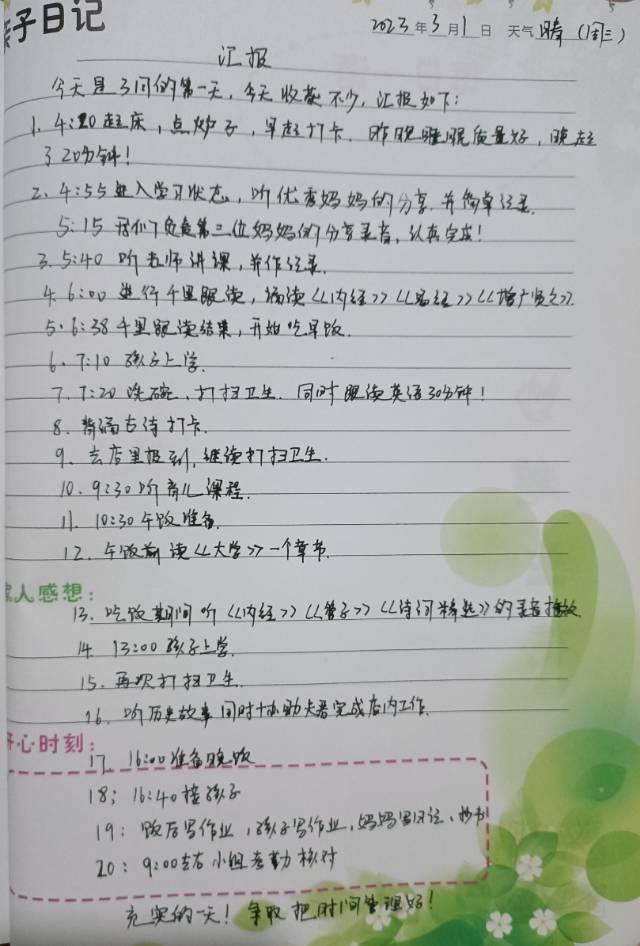 亲子日记
2023年3月1日 天气 晴 (周三)
汇报
今天是3月的第一天,今天收获不少,汇报如下:
1. 4:20起床,点炉子,早起打卡.昨晚睡眠质量好,晚起
了20分钟!
2. 4:55进入学习状态,听优秀妈妈的分享.并简单记录.
5:15 我们负责第三位妈妈的分享录音,认真完成!
3. 5:40 听老师讲课,并作记录.
4. 6:00 进行千里跟读,诵读《内经》《易经》《增广贤文》.
5. 6:38 千里跟读结束,开始吃早饭.
6. 7:10 孩子上学.
7. 7:20 洗碗、打扫卫生.同时跟读英语30分钟!
8. 背诵古诗打卡.
9. 去店里报到,继续打扫卫生.
10. 9:30 听育儿课程.
11. 10:30 午饭准备.
12. 午饭前读《大学》一个章节.
家人感想:
13. 吃饭期间听《内经》《管子》《诗词精选》的录音播放
14. 13:00 孩子上学.
15. 再次打扫卫生.
16. 听历史故事同时协助夫君完成店内工作.
开心时刻:
17. 16:00准备晚饭
18; 16:40 接孩子
19: 饭后写作业,孩子写作业,妈妈写日记、抄书
20: 9:00左右 小组考勤核对
充实的一天!争取把时间管理好!